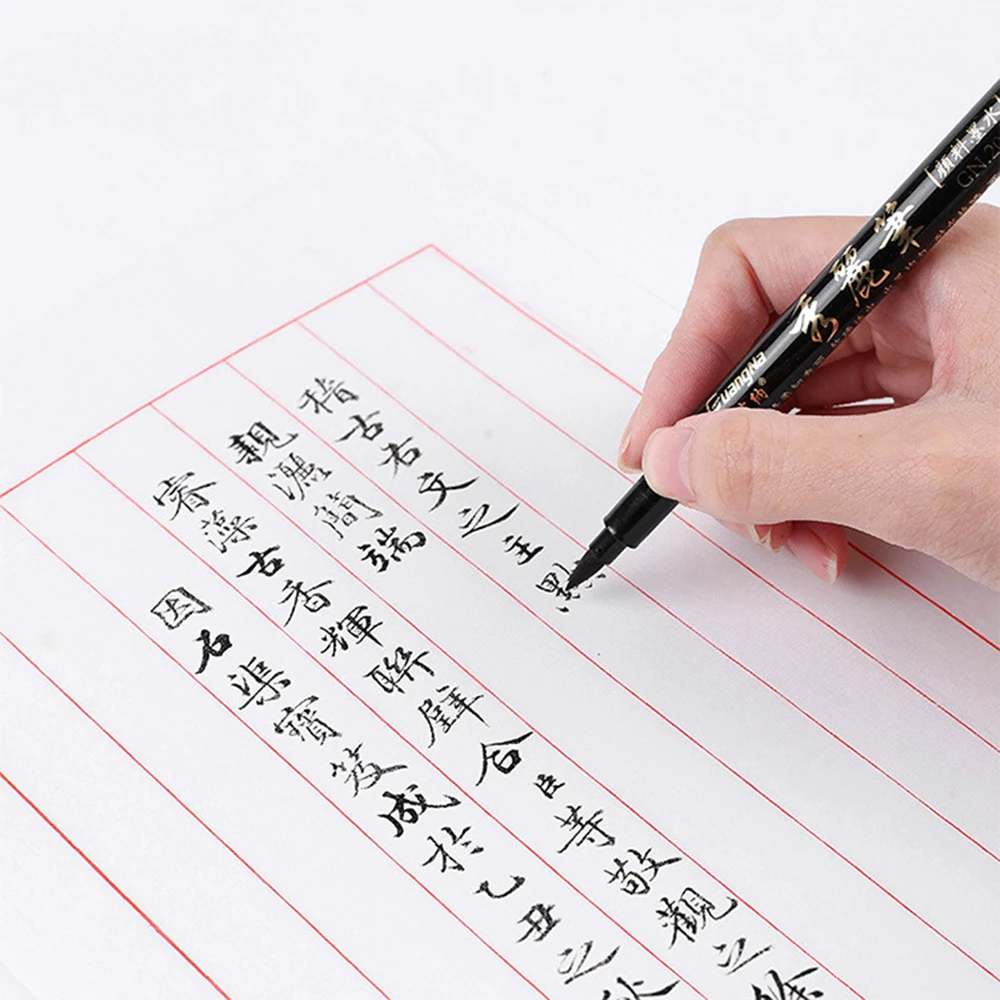 稽古右文之主
親灑簡端
睿藻古香輝聯璧合臣等敬觀之餘
因石渠寶笈成於乙丑之秋
秀麗筆
Guangna
[顏料墨水
GN.20